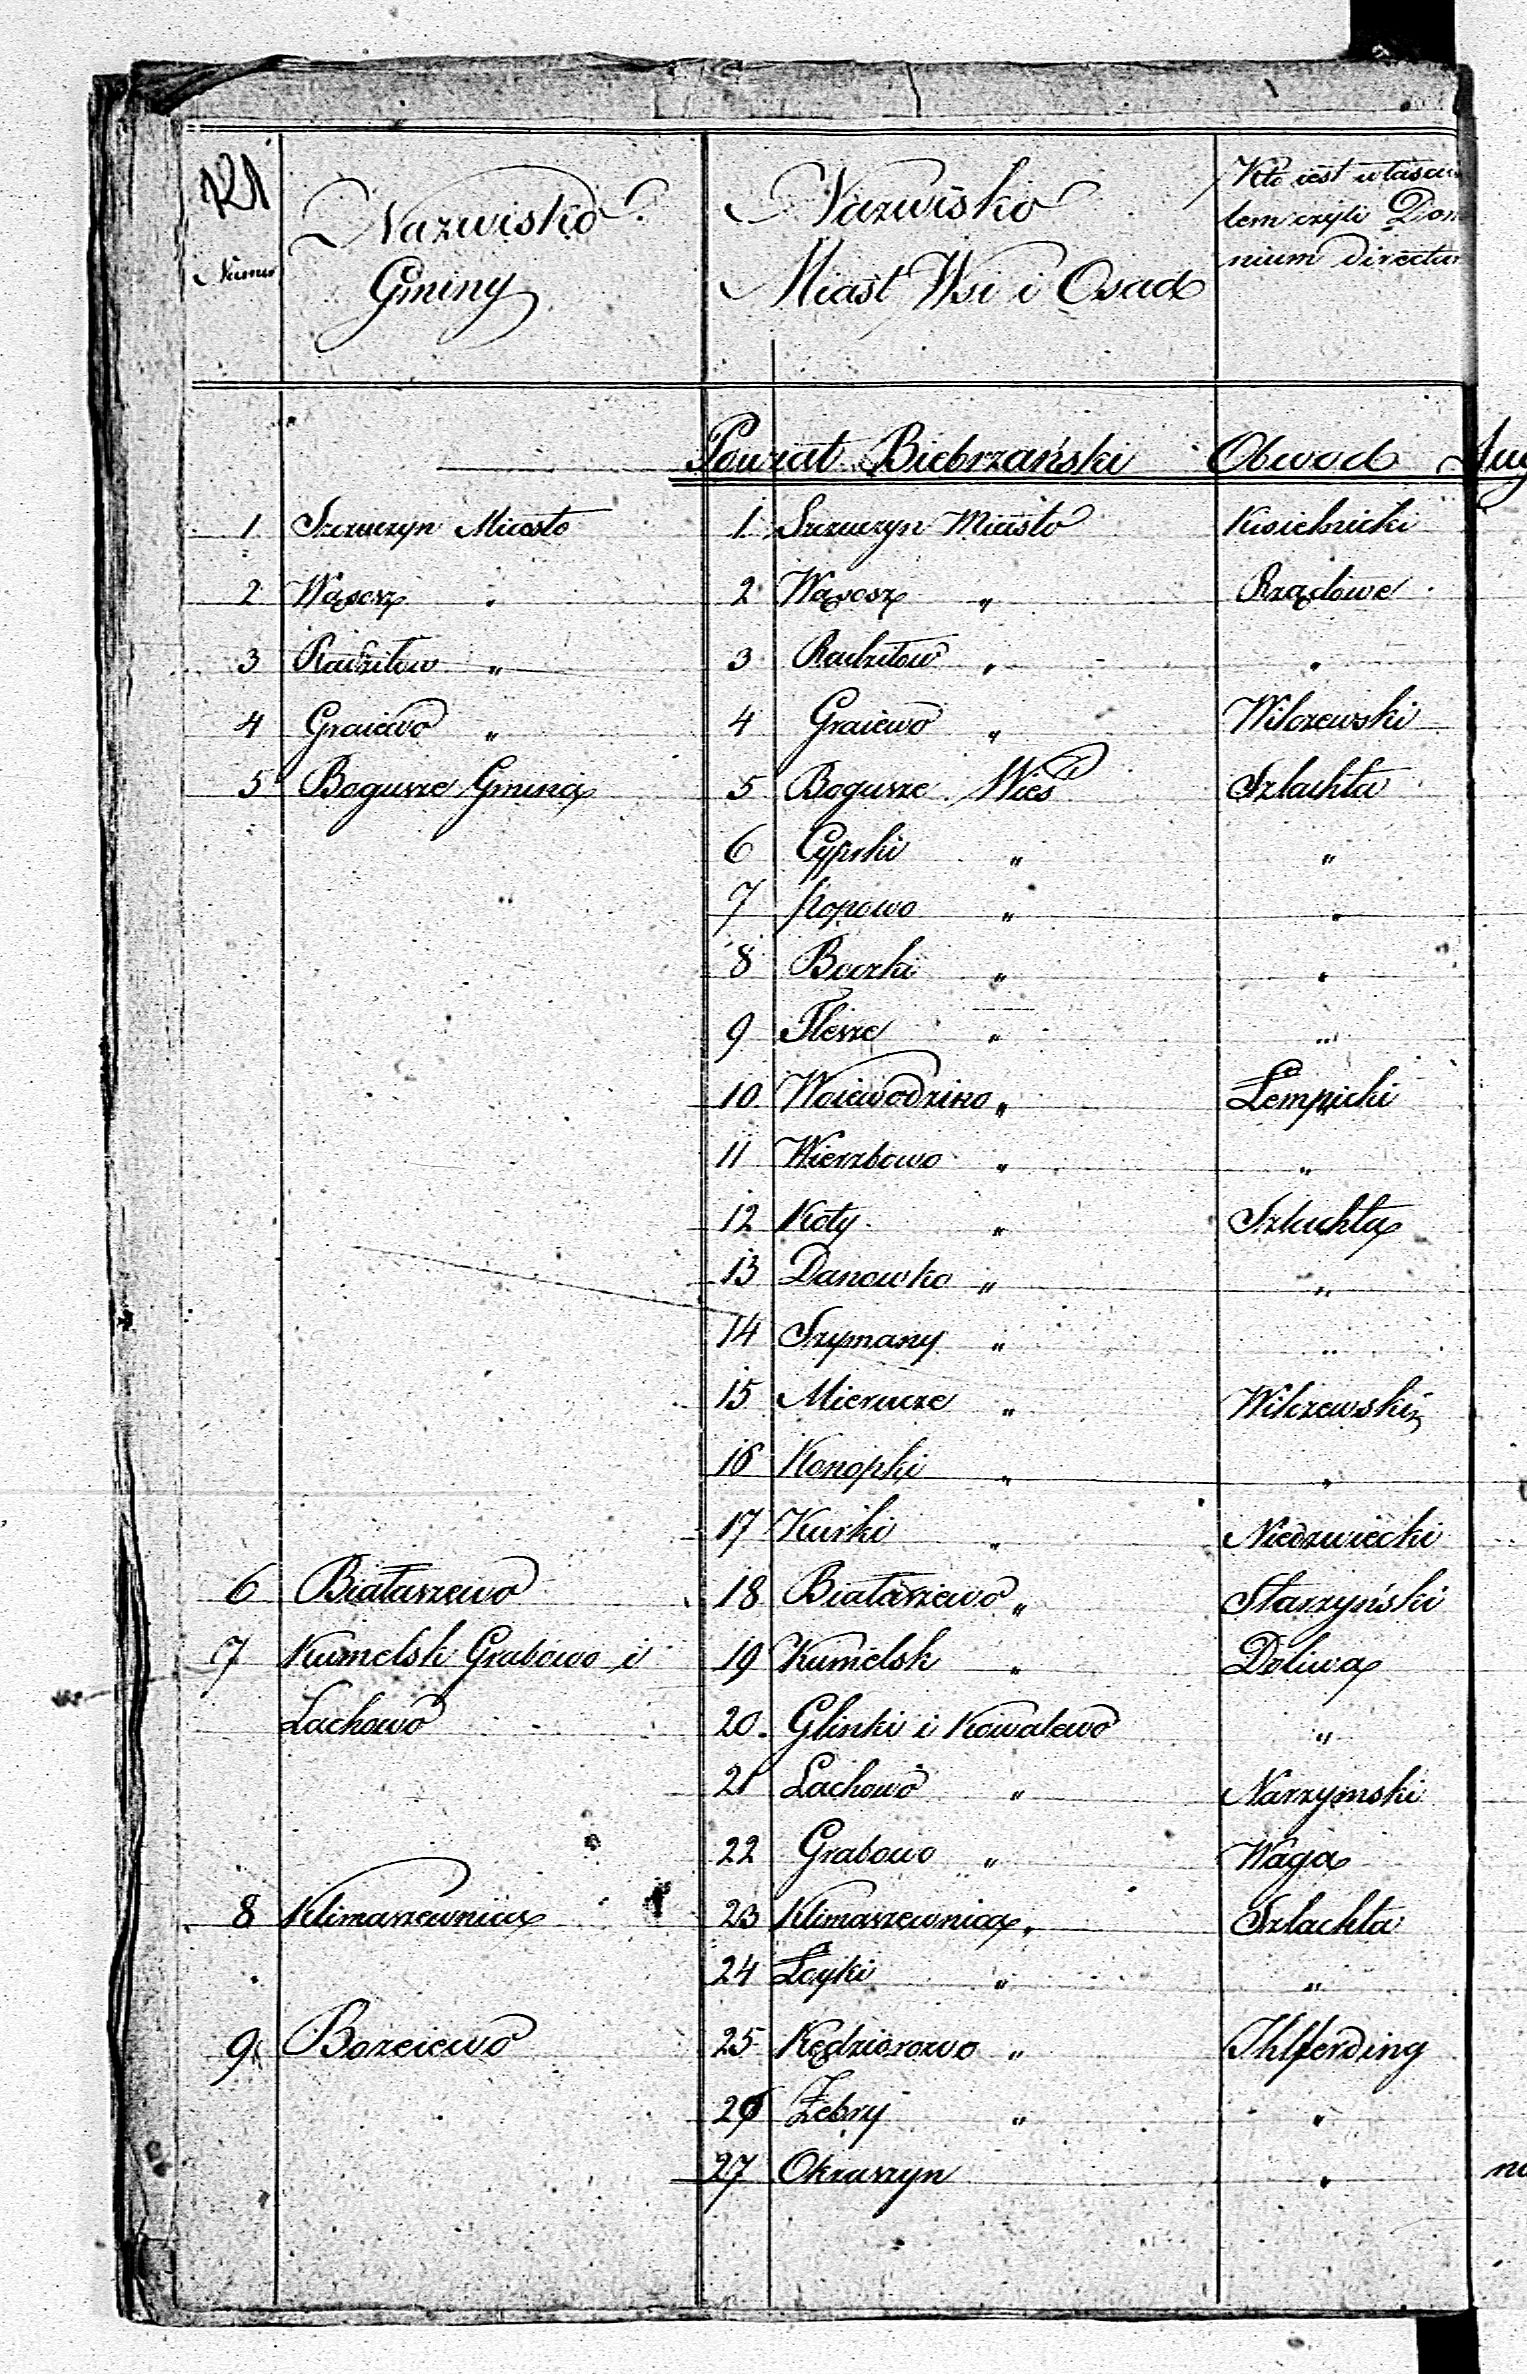 Numer
Nazwisko
Gminy
Nazwisko
Miast Wsi i Osad
Kto iest własci
lem czyli Dom
nium directu
Powiat Biebrzański Obwod Aug
1 Szczuczyn Miasto 1 Szczuczyn Miasto Kisielnicki
2 Wąsosz " 2 Wąsosz " Rządowe
3 Radziłow " 3 Radziłow " "
4 Graiewo " 4 Graiewo " Wilczewski
5 Bogusze Gmina 5 Bogusze Wieś Szlachta
6 Cyprki " "
7 Popowo " "
8 Boczki " "
9 Flesze " "
10 Woiewodzino " Łempicki
11 Wierzbowo " "
12 Koty " Szlachta
13 Danowko " "
14 Szymany " "
15 Mierucze " Wilczewski
16 Konopki " "
17 Kurki " Niedzwiecki
6 Białaszewo 18 Białaszewo " Starzyński
7 Kumelsk Grabowo i 19 Kumelsk " Doliwa
Lachowo 20. Glinki i Kowalewo "
21 Lachowo " Narzymski
22 Grabowo " Waga
8 Klimaszewnica 23 Klimaszewnica " Szlachta
24 Łoyki " "
9 Bozeiewo 25 Kędziorowo " Ihlferding
26 Żebry " "
27 Okraszyn "